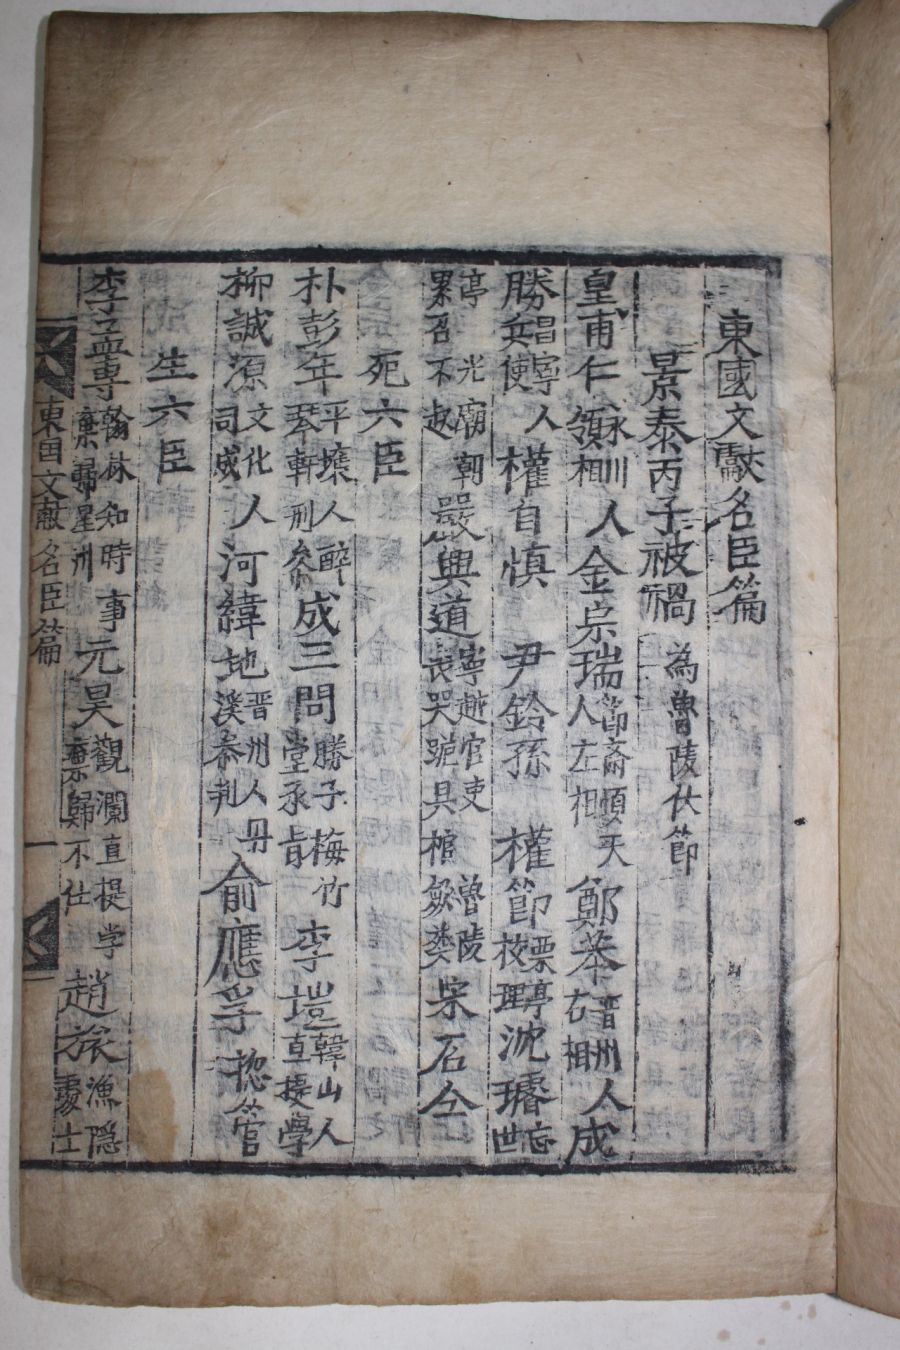 東國文獻名臣篇
景泰丙子被禍 為魯陵伏節
皇甫仁 永川人領相 金宗瑞 節齋順天人左相 鄭苯 晋州人右相 成
勝 昌寧人兵使 權自愼 尹鈴孫 權節 栗亭校理 沈璿 忘世
亭光廟朝累召不起 嚴興道 寧越官吏魯陵喪哭踊具棺斂葬 宋石仝
死六臣
朴彭年 平壤人醉琴軒刑叅 成三問 勝子梅竹堂承旨 李塏 韓山人直提學
柳誠源 文化人司成 河緯地 晋州人丹溪叅判 俞應孚 摠管
生六臣
李孟專 翰林知時事棄歸星州 元昊 觀瀾直提学棄歸不仕 趙旅 漁隱處士
東国文献 名臣篇